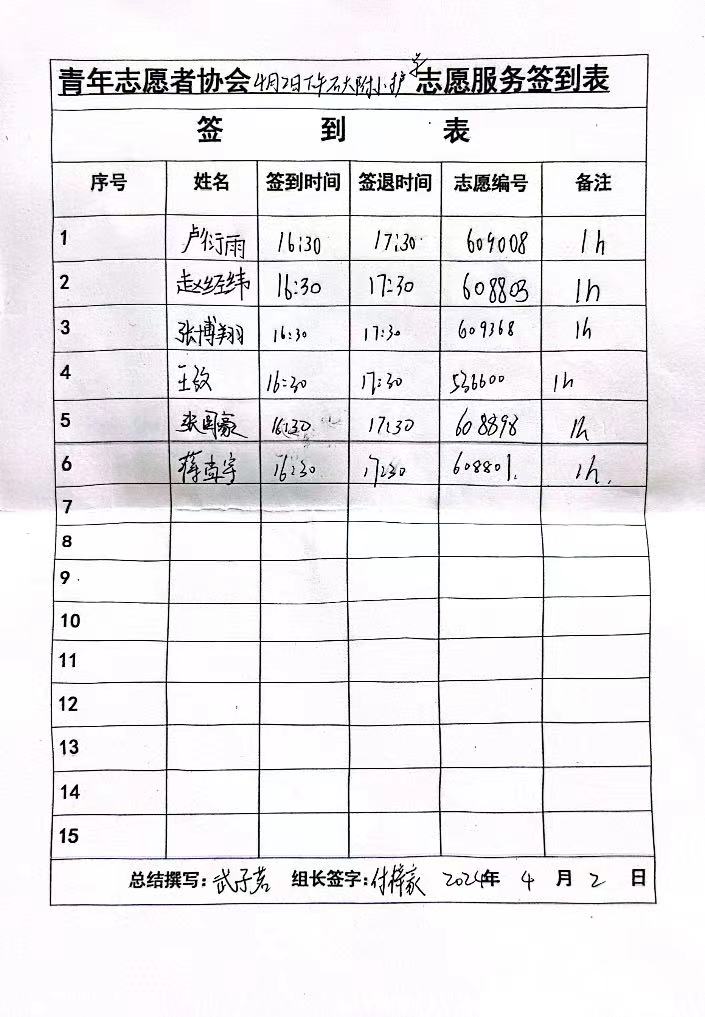 青年志愿者协会4月2日下午石大附小护学志愿服务签到表
签 到 表
序号 姓名 签到时间 签退时间 志愿编号 备注
1 卢衍雨 16:30 17:30 609008 1h
2 赵经纬 16:30 17:30 608803 1h
3 张博翔 16:30 17:30 609368 1h
4 王 16:30 17:30 536600 1h
5 张国豪 16:30 17:30 608898 1h
6 蒋宜宇 16:30 17:30 608801. 1h.
7
8
9
10
11
12
13
14
15
总结撰写:武子若 组长签字:付梓豪 2024年 4 月 2 日